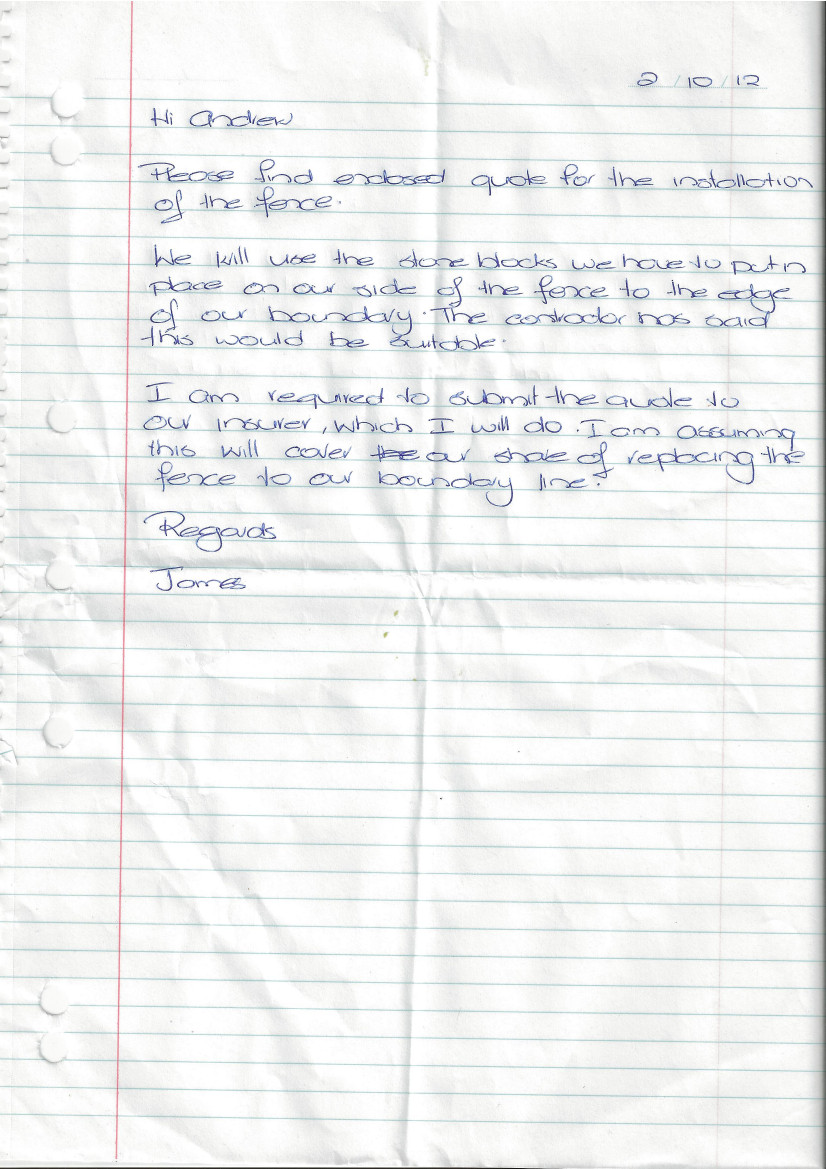 2/10/12
Hi Andrew
Please find enclosed quote for the installation
of the fence.
We will use the stone blocks we have to put in
place on our side of the fence to the edge
of our boundary. The contractor has said
this would be suitable.
I am required to submit the quote to
our insurer, which I will do. I am assuming
this will cover the our share of replacing the
fence to our boundary line.
Regards
James